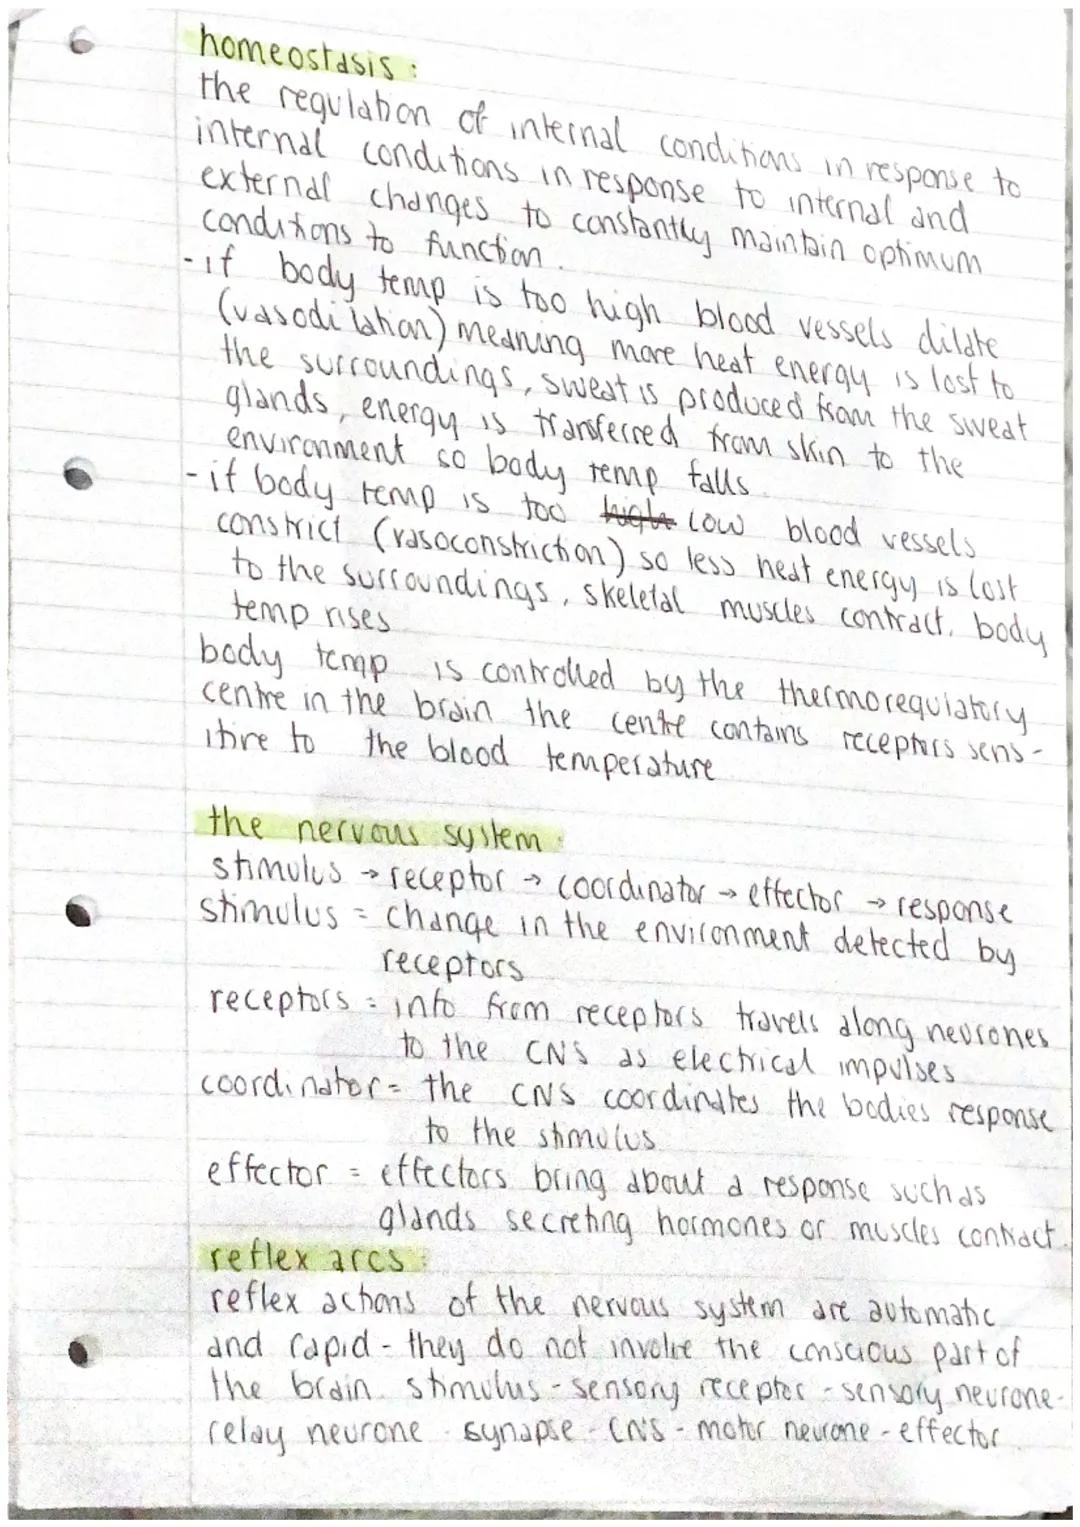 homeostasis:
the regulation of internal conditions in response to
internal conditions in response to internal and
external changes to constantly maintain optimum
conditions to function.
- if body temp is too high blood vessels dilate
(vasodilation) meaning more heat energy is lost to
the surroundings, sweat is produced from the sweat
glands, energy is transferred from skin to the
environment so body temp falls
- if body temp is too high low blood vessels
constrict (vasoconstriction) so less heat energy is lost
to the surroundings, skeletal muscles contract, body
temp rises
body temp is controlled by the thermoregulatory
centre in the brain the centre contains receptors sens-
itive to the blood temperature
the nervous system:
stimulus → receptor → coordinator → effector → response
stimulus = change in the environment detected by
receptors
receptors = info from receptors travels along neurones
to the CNS as electrical impulses
coordinator = the CNS coordinates the bodies response
to the stimulus
effector = effectors bring about a response such as
glands secreting hormones or muscles contract.
reflex arcs:
reflex actions of the nervous system are automatic
and rapid - they do not involve the conscious part of
the brain. stimulus - sensory receptor - sensory neurone -
relay neurone - synapse - CNS - motor neurone - effector